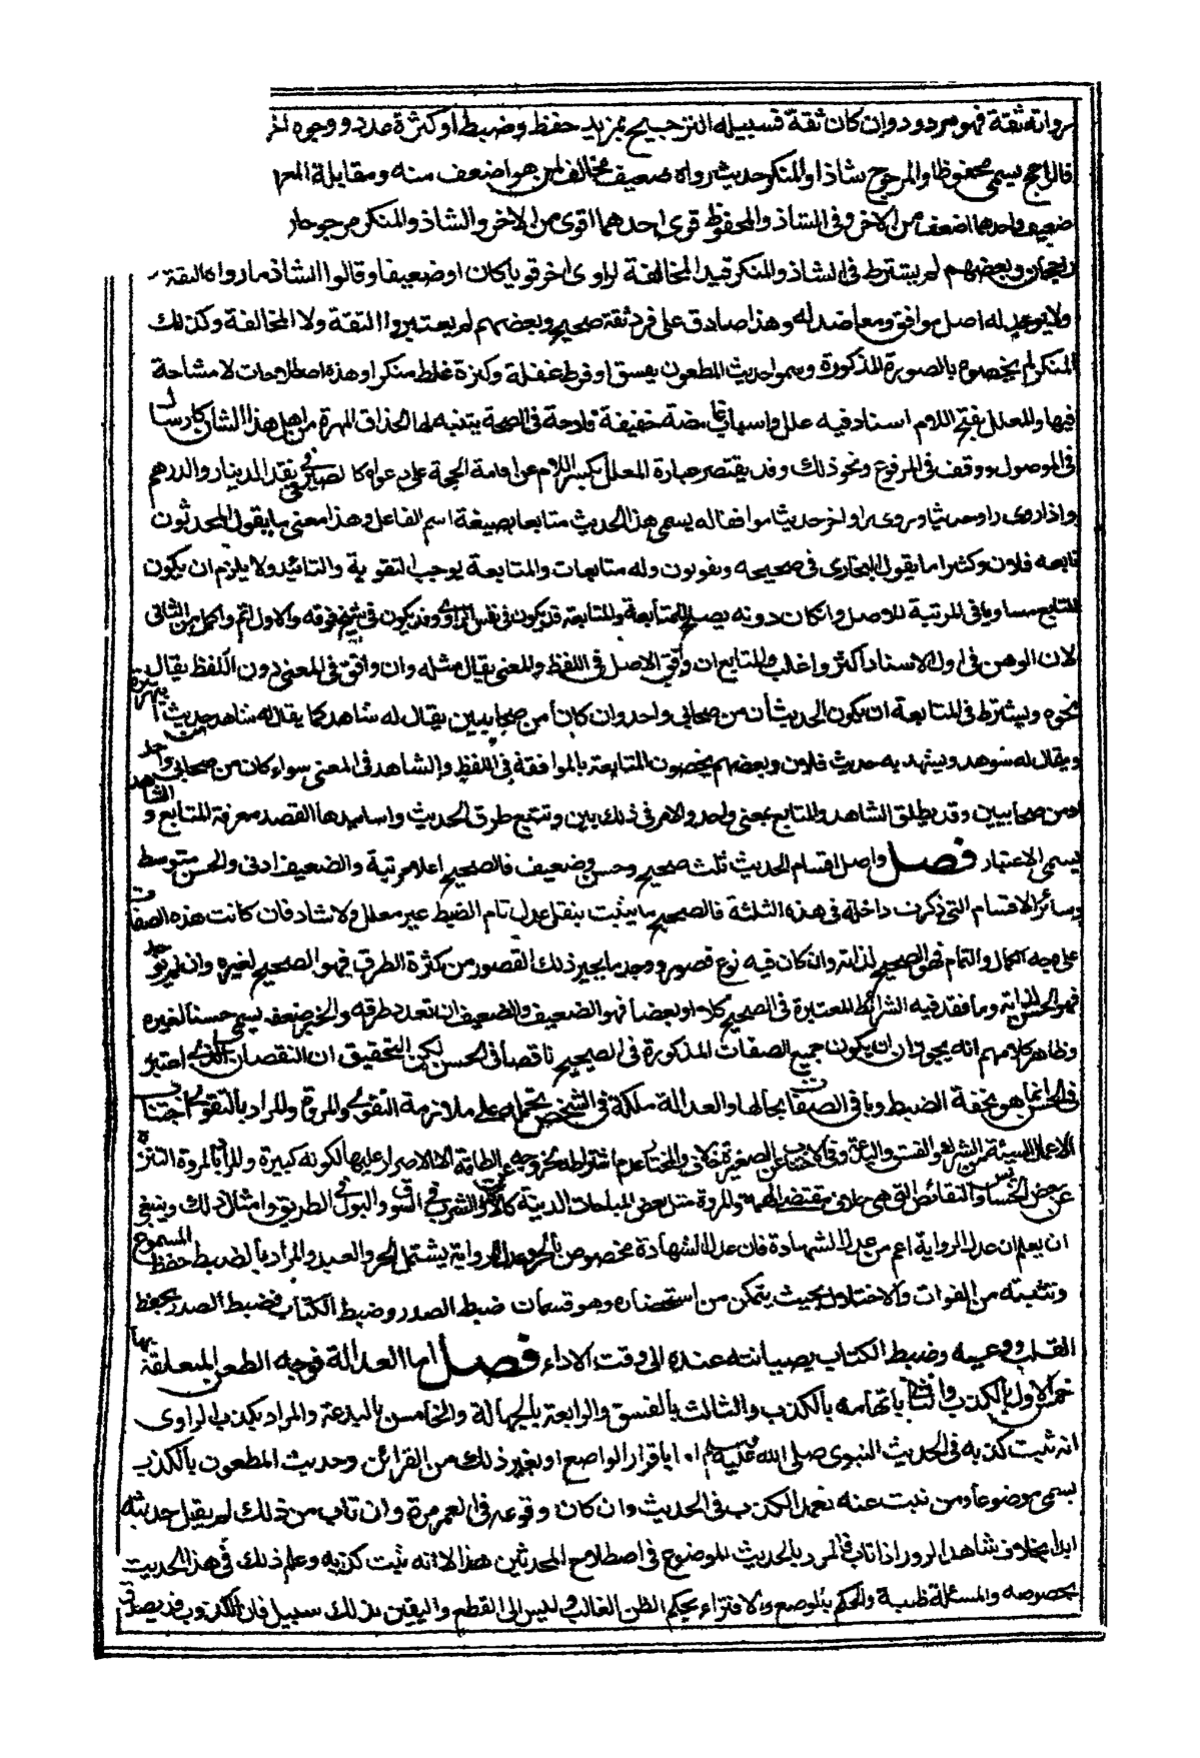 رواته ثقة فهو مردود وان كان ثقة فسبيله الترجيح بمزيد حفظ وضبط او كثرة عدد ووجوه اخر
فالراجح يسمى محفوظا والمرجوح شاذا والمنكر حديث رواه ضعيف مخالف لمن هو اضعف منه ومقابله المعر
ضعيف واحدهما اضعف من الاخر وفي الشاذ والمحفوظ قوى احدهما اقوى من الاخر والشاذ والمنكر مرجوحا
راجحان وبعضهم لم يشترط في الشاذ والمنكر قيد المخالفة لراوى اخر قويا كان او ضعيفا وقالوا الشاذ ما رواه الثقة
ولا يوجد له اصل موافق ومعاضد له وهذا صادق على فرد ثقة صحيح وبعضهم لم يعتبروا الثقة ولا المخالفة وكذلك
المنكر لم يخصوه بالصورة المذكورة وسموا حديث المطعون بفسق او فرط غفلة وكثرة غلط منكرا وهذه اصطلاحات لا مشاحة
فيها والمعلل بفتح اللام اسناد فيه علل واسباب غامضة خفيفة قادحة في الصحة يتنبه لها الحذاق المهرة من اهل هذا الشان كارسال
في الموصول ووقف في المرفوع ونحو ذلك وقد يقتصر عبارة المعلل بكسر اللام عن اقامة الحجة على دعواه كالصيرفي في نقد الدينار والدرهم
واذا روى راو حديثا وروى راو اخر حديثا موافقا له يسمى هذا الحديث متابعا بصيغة اسم الفاعل وهذا معنى ما يقول المحدثون
تابعه فلان وكثيرا ما يقول البخارى في صحيحه ويقولون وله متابعات والمتابعة يوجب التقوية والتائيد ولا يلزم ان يكون
المتابع مساويا في المرتبة للاصل وان كان دونه يصلح للمتابعة والمتابعة قد يكون في نفس الراوى وقد يكون في شيخ فوقه والاول اتم واكمل من الثاني
لان الوهن في اول الاسناد اكثر واغلب والمتابع ان وافق الاصل في اللفظ والمعنى يقال مثله وان وافق في المعنى دون اللفظ يقال
نحوه ويشترط في المتابعة ان يكون الحديثان من صحابي واحد وان كانا من صحابيين يقال له شاهد كما يقال له شاهد حديث ابي هريرة
ويقال له شوهد ويشهد به حديث فلان وبعضهم يخصون المتابعة بالموافقة في اللفظ والشاهد في المعنى سواء كان من صحابي واحد
او من صحابيين وقد يطلق الشاهد والمتابع بمعنى واحد والامر في ذلك بين وتتبع طرق الحديث واسانيدها القصد معرفة المتابع والشاهد
يسمى الاعتبار فصل واصل اقسام الحديث ثلث صحيح وحسن وضعيف فالصحيح اعلا مرتبة والضعيف ادنى والحسن متوسط
وسائر الاقسام التي ذكرت داخلة في هذه الثلثة فالصحيح ما يثبت بنقل عدل تام الضبط غير معلل ولا شاذ فان كانت هذه الصفات
على وجه الكمال والتمام فهو الصحيح لذاته وان كان فيه نوع قصور ووجد ما يجبر ذلك القصور من كثرة الطرق فهو الصحيح لغيره وان لم يوجد
فهو الحسن لذاته وما فقد فيه الشرائط المعتبرة في الصحيح كلا او بعضا فهو الضعيف والضعيف ان تعدد طرقه وانجبر ضعفه يسمى حسنا لغيره
وظاهر كلامهم انه يجوز ان يكون جميع الصفات المذكورة في الصحيح ناقصا في الحسن لكن التحقيق ان النقصان الذي اعتبر
في الحسن انما هو بخفة الضبط وباقي الصفات بحالها والعدالة ملكة في الشخص تحمله على ملازمة التقوى والمروة والمراد بالتقوى اجتناب
الاعمال السيئة من الشرك والفسق والبدعة وفي الاجتناب عن الصغيرة خلاف والمختار عدم اشتراطه لخروجه عن الطاقة الا الاصرار عليها لكونه كبيرة والمراد بالمروة التنزه
عن بعض الخسائس والنقائص التي هي خلاف مقتضى الهمة والمروة مثل بعض المباحات الدنية كالاكل والشرب في السوق والبول في الطريق وامثال ذلك وينبغي
ان يعلم ان عدل الرواية اعم من عدل الشهادة فان عدل الشهادة مخصوص بالحر وعدل الرواية يشتمل الحر والعبد والمراد بالضبط حفظ المسموع
وتثبته من الفوات والاختلال بحيث يتمكن من استحضاره وهو قسمان ضبط الصدر وضبط الكتاب فضبط الصدر بحفظ
القلب ووعيه وضبط الكتاب بصيانته عنده الى وقت الاداء فصل اما العدالة فوجه الطعن المتعلقة بها
خمس الاول بالكذب والثاني باتهامه بالكذب والثالث بالفسق والرابعة بالجهالة والخامس بالبدعة والمراد بكذب الراوى
انه ثبت كذبه في الحديث النبوى صلى الله عليه وسلم اما باقرار الواضع او بغير ذلك من القرائن وحديث المطعون بالكذب
يسمى موضوعا ومن ثبت عنه تعمد الكذب في الحديث وان كان وقوعه في العمر مرة وان تاب من ذلك لم يقبل حديثه
ابدا بخلاف شاهد الزور اذا تاب فالمراد بالحديث الموضوع في اصطلاح المحدثين هذا لا انه ثبت كذبه وعلم ذلك في هذا الحديث
بخصوصه والمسئلة ظنية والحكم بالوضع والافتراء بحكم الظن الغالب وليس الى القطع واليقين بذلك سبيل فان الكذوب قد يصدق